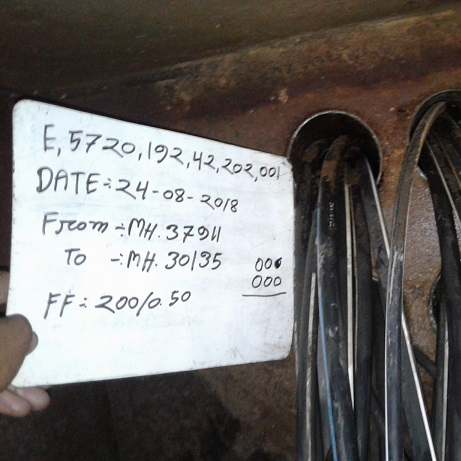 E, 5720, 192, 42, 202, 001
DATE:- 24-08-2018
From -:- MH. 37911
To -:- MH. 30135
000
000
FF:- 200/0.50